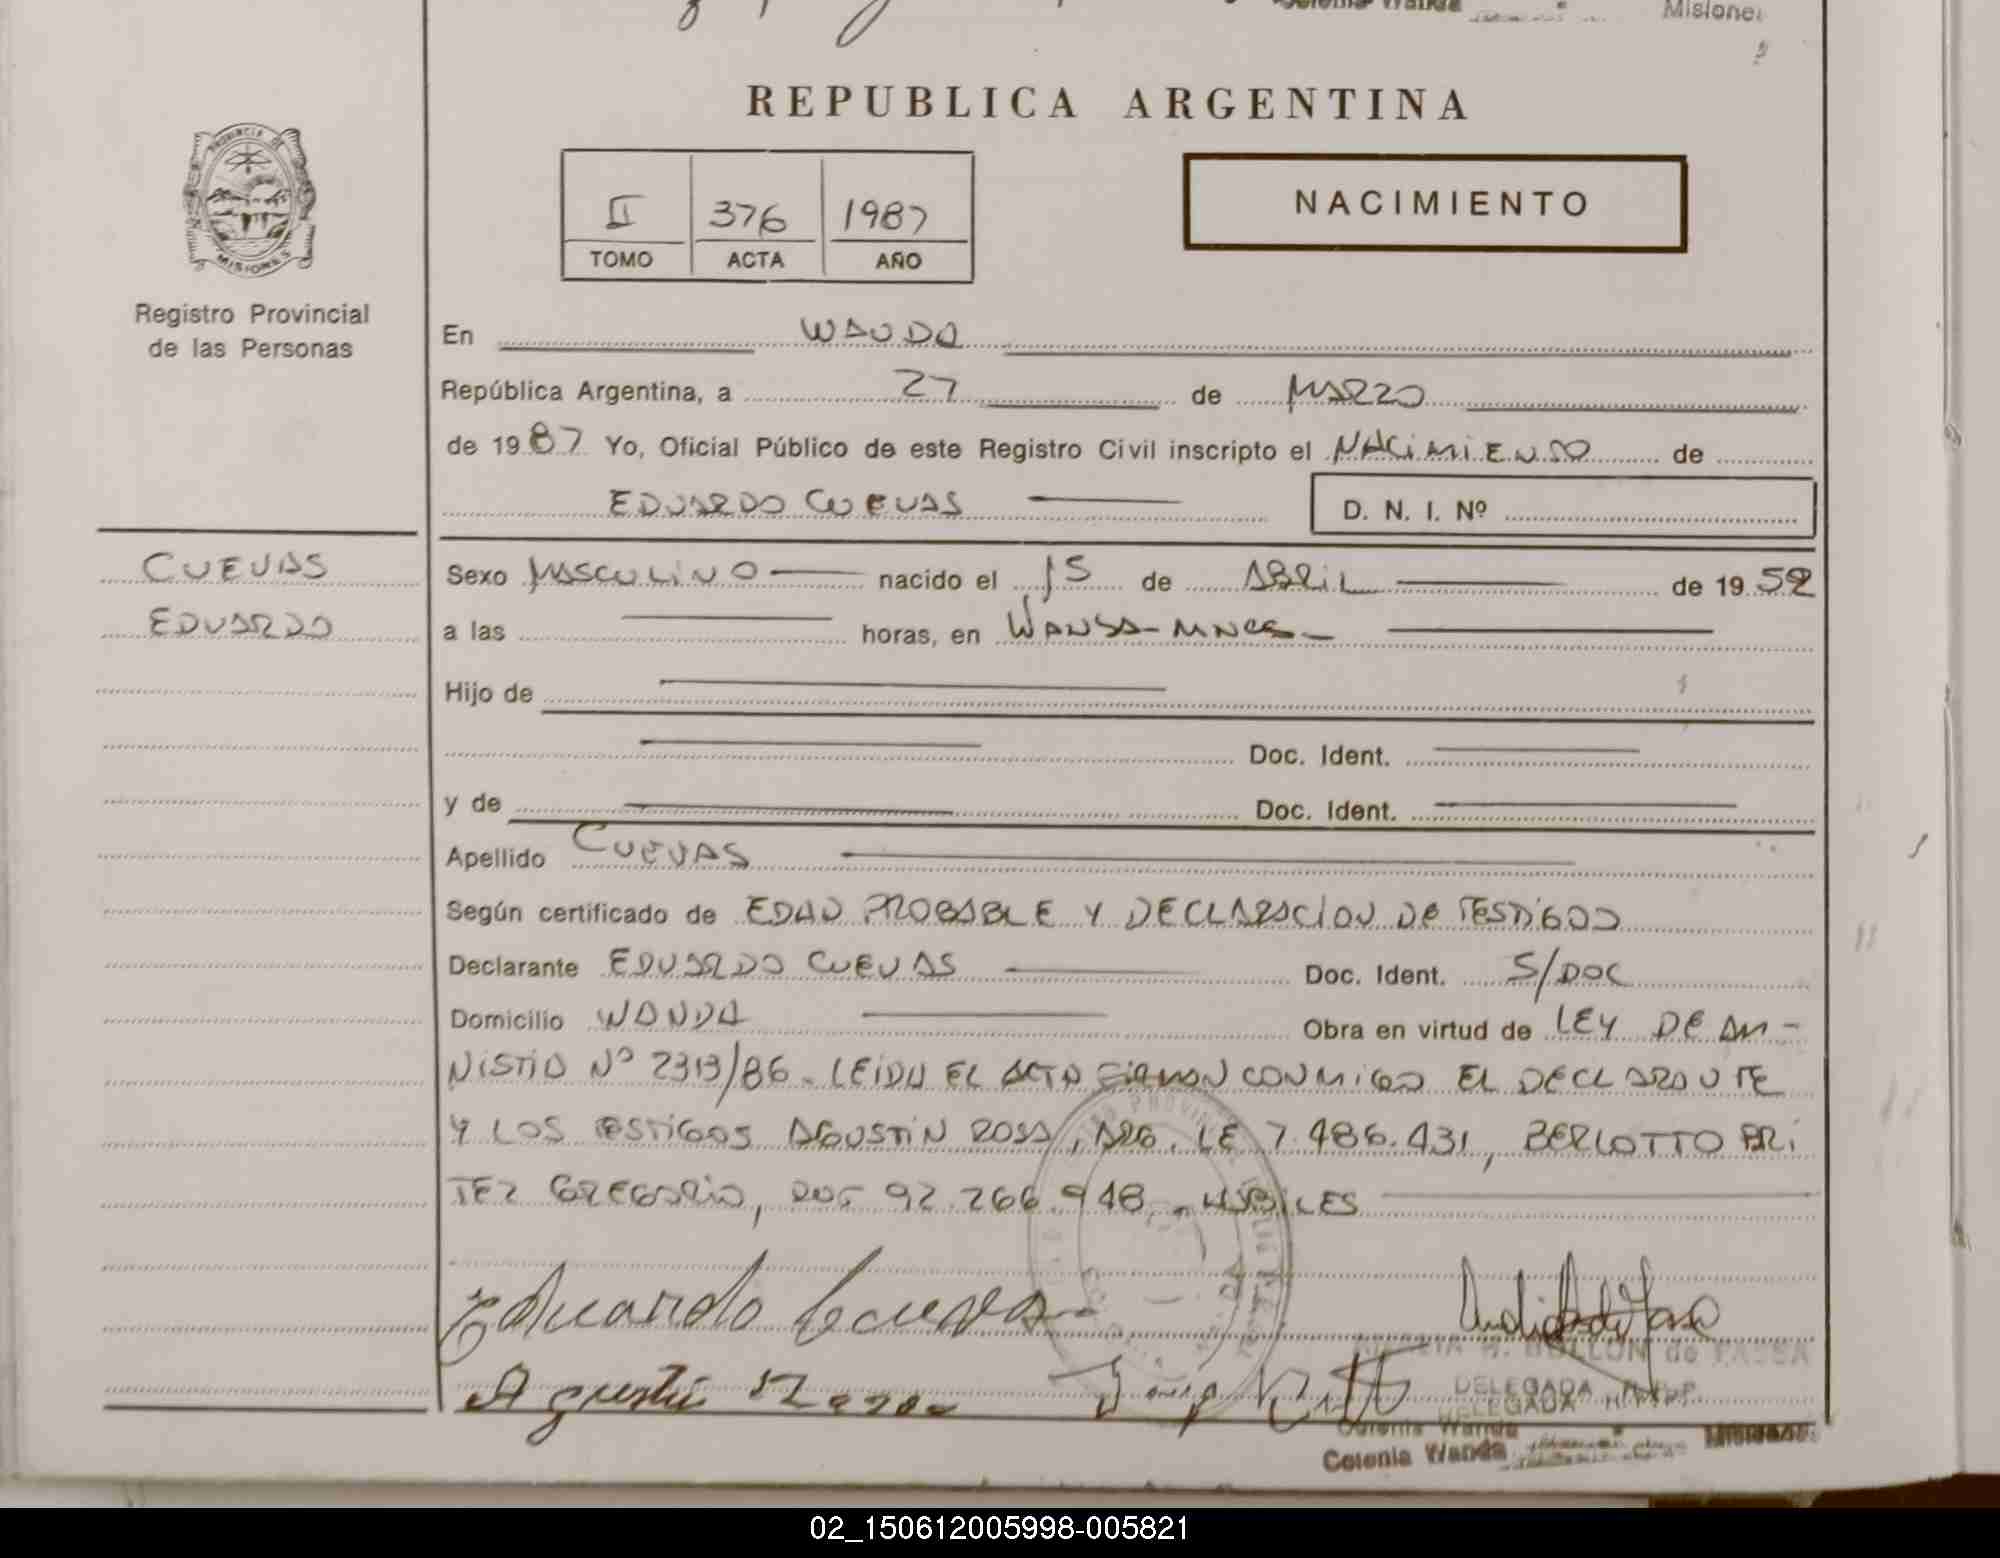 Colonia Wanda Misiones
REPUBLICA ARGENTINA
PROVINCIA DE
MISIONES
II 376 1987
TOMO ACTA AÑO
NACIMIENTO
Registro Provincial
de las Personas
En WANDA
República Argentina, a 27 de MARZO
de 1987 Yo, Oficial Público de este Registro Civil inscripto el NACIMIENTO de
EDUARDO CUEVAS D. N. I. Nº
CUEVAS
EDUARDO
Sexo MASCULINO nacido el 15 de ABRIL de 1952
a las horas, en WANDA - MNES -
Hijo de
Doc. Ident.
y de Doc. Ident.
Apellido CUEVAS
Según certificado de EDAD PROBABLE Y DECLARACION DE TESTIGOS
Declarante EDUARDO CUEVAS Doc. Ident. S/DOC
Domicilio WANDA Obra en virtud de LEY DE AM-
NISTIA Nº 2313/86. LEIDA EL ACTA FIRMAN CONMIGO EL DECLARANTE
Y LOS TESTIGOS AGUSTIN ROSA, ARG. LE 7.486.431, BERLOTTO BRI
TEZ GREGORIO, 92.266.948. HABILES
Eduardo Cuevas
DELEGADA
DELEGADA
Colonia Wanda
Colonia Wanda Misiones
02_150612005998-005821